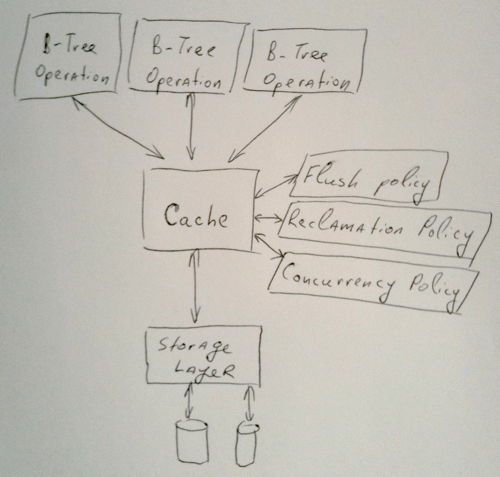 B-Tree
Operation
B-Tree
Operation
B-Tree
Operation
Cache
Flush policy
Reclamation Policy
Concurrency Policy
Storage
Layer